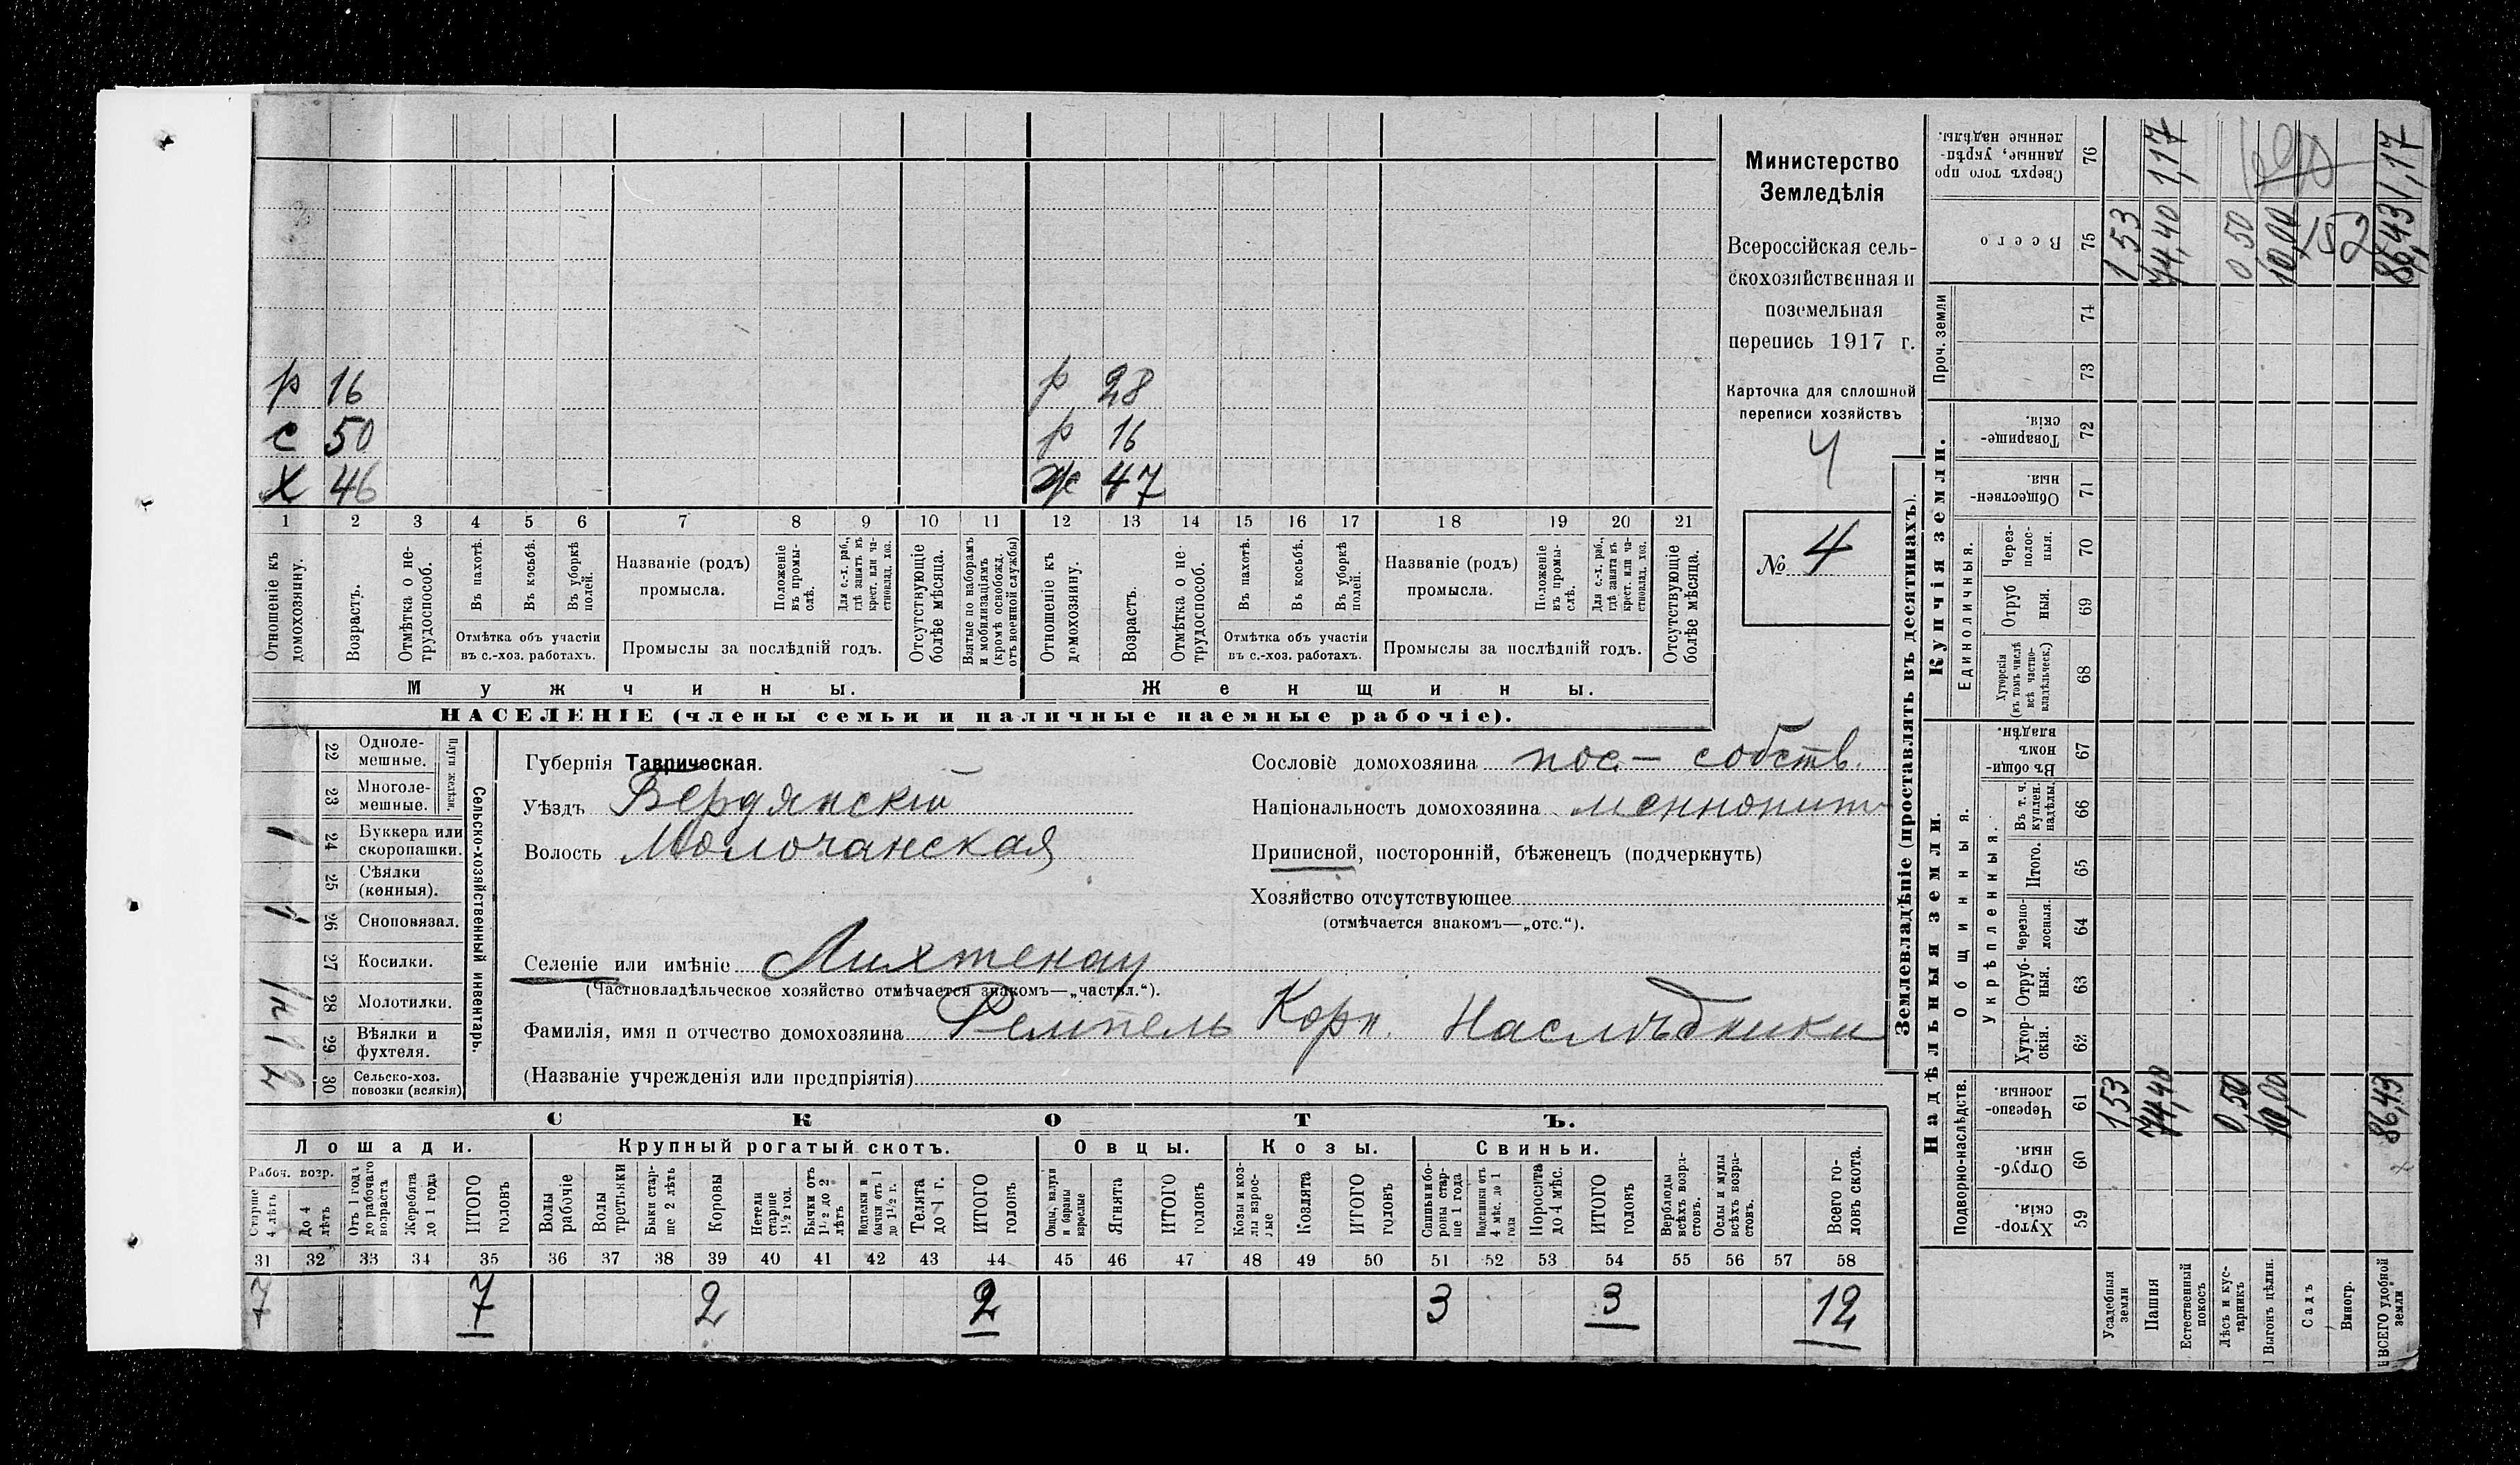 р 16 р 28
с 50 р 16
х 46 ж 47
1 2 3 4 5 6 7 8 9 10 11 12 13 14 15 16 17 18 19 20 21
Отношеніе къ домохозяину.
Возрастъ.
Отмѣтка о не-
трудоспособ.
Въ пахотѣ.
Въ косьбѣ.
Въ уборкѣ
полей.
Отмѣтка объ участіи
въ с.-хоз. работахъ.
Названіе (родъ)
промысла.
Положеніе
въ промы-
слѣ.
Для с.-х. раб.,
гдѣ занятъ въ
крест. или ча-
стновлад. хоз.
Промыслы за послѣдній годъ.
Отсутствующіе
болѣе мѣсяца.
Взятые по наборамъ
и мобилизаціямъ
(кромѣ освобожд.
отъ военной службы)
Отношеніе къ
домохозяину.
Возрастъ.
Отмѣтка о не-
трудоспособ.
Въ пахотѣ.
Въ косьбѣ.
Въ уборкѣ
полей.
Отмѣтка объ участіи
въ с.-хоз. работахъ.
Названіе (родъ)
промысла.
Положеніе
въ промы-
слѣ.
Для с.-х. раб.,
гдѣ занята въ
крест. или ча-
стновлад. хоз.
Промыслы за послѣдній годъ.
Отсутствующіе
болѣе мѣсяца.
Мужчины. Женщины.
НАСЕЛЕНІЕ (члены семьи и наличные наемные рабочіе).
Министерство
Земледѣлія
Всероссійская сель-
скохозяйственная и
поземельная
перепись 1917 г.
Карточка для сплошной
переписи хозяйствъ
4
№ 4
Сельско-хозяйственный инвентарь.
Плуги желѣзн.
22 Одноле-
мешные.
23 Многоле-
мешные.
1 24 Буккера или
скоропашки.
25 Сѣялки
(конныя).
1 26 Сноповязал.
27 Косилки.
28 Молотилки.
1 29 Вѣялки и
фухтеля.
2 30 Сельско-хоз.
повозки (всякія)
Губернія Таврическая.
Уѣздъ Бердянскій
Волость Молочанская
Селеніе или имѣніе Лихтенау
(Частновладѣльческое хозяйство отмѣчается знакомъ—„частвл.“).
Фамилія, имя и отчество домохозяина Ремпель Корн. Наслѣдники
(Названіе учрежденія или предпріятія)
Сословіе домохозяина пос.— собств.
Національность домохозяина меннонит
Приписной, посторонній, бѣженецъ (подчеркнуть)
Хозяйство отсутствующее
(отмѣчается знакомъ—„отс.“).
СКОТЪ.
Лошади. Крупный рогатый скотъ. Овцы. Козы. Свиньи.
Рабоч. возр.
Старше
4 лѣтъ
До 4
лѣтъ
Отъ 1 года
до рабочаго
возраста
Жеребята
до 1 года
ИТОГО
головъ
Волы
рабочіе
Волы
третьяки
Быки стар-
ше 2 лѣтъ
Коровы
Нетели
старше
1½ год.
Бычки отъ
1½ до 2
лѣтъ
Подтелки и
бычки отъ 1
до 1½ г.
Телята
до 1 г.
ИТОГО
головъ
Овцы, валухи
и бараны
взрослые
Ягнята
ИТОГО
головъ
Козы и коз-
лы взрос-
лые
Козлята
ИТОГО
головъ
Свиньи бо-
ровы стар-
ше 1 года
Подсвинки отъ
4 мѣс. до 1
года
Поросята
до 4 мѣс.
ИТОГО
головъ
Верблюды
всѣхъ возра-
стовъ.
Ослы и мулы
всѣхъ возра-
стовъ.
Всего го-
ловъ скота.
31 32 33 34 35 36 37 38 39 40 41 42 43 44 45 46 47 48 49 50 51 52 53 54 55 56 57 58
7 7 2 2 3 3 12
Землевладѣніе (проставлять въ десятинахъ).
Надѣльныя земли. Купчія земли. Проч. земли
Подворно-наслѣдств.
Общинныя.
Укрѣпленныя.
Единоличныя.
Хутор-
скія. 59
Отруб-
ныя. 60
Черезпо-
лосныя. 61
Хутор-
скія. 62
Отруб-
ныя. 63
Черезпо-
лосныя. 64
Итого. 65
Въ т. ч.
куплен.
надѣлы. 66
Въ общи-
номъ
владѣн. 67
Хуторскія
(въ томъ числѣ
всѣ частно-
владѣльческ.) 68
Отруб
ныя. 69
Через-
полос-
ныя. 70
Обществен-
ныя. 71
Товарище-
скія. 72
73 74
Всего 75
Сверхъ того про
данные, укрѣп-
ленные надѣлы. 76
Усадебныя
земли 1,53 1 53
Пашня 74,40 74,40 1,17
Естественный
покосъ
Лѣсъ и кус-
тарникъ 0,50 0,50
Выгонъ цѣлин. 10,00 10,00
Садъ
Виногр.
ВСЕГО удобной
земли 86,43 86,43 1,17
152